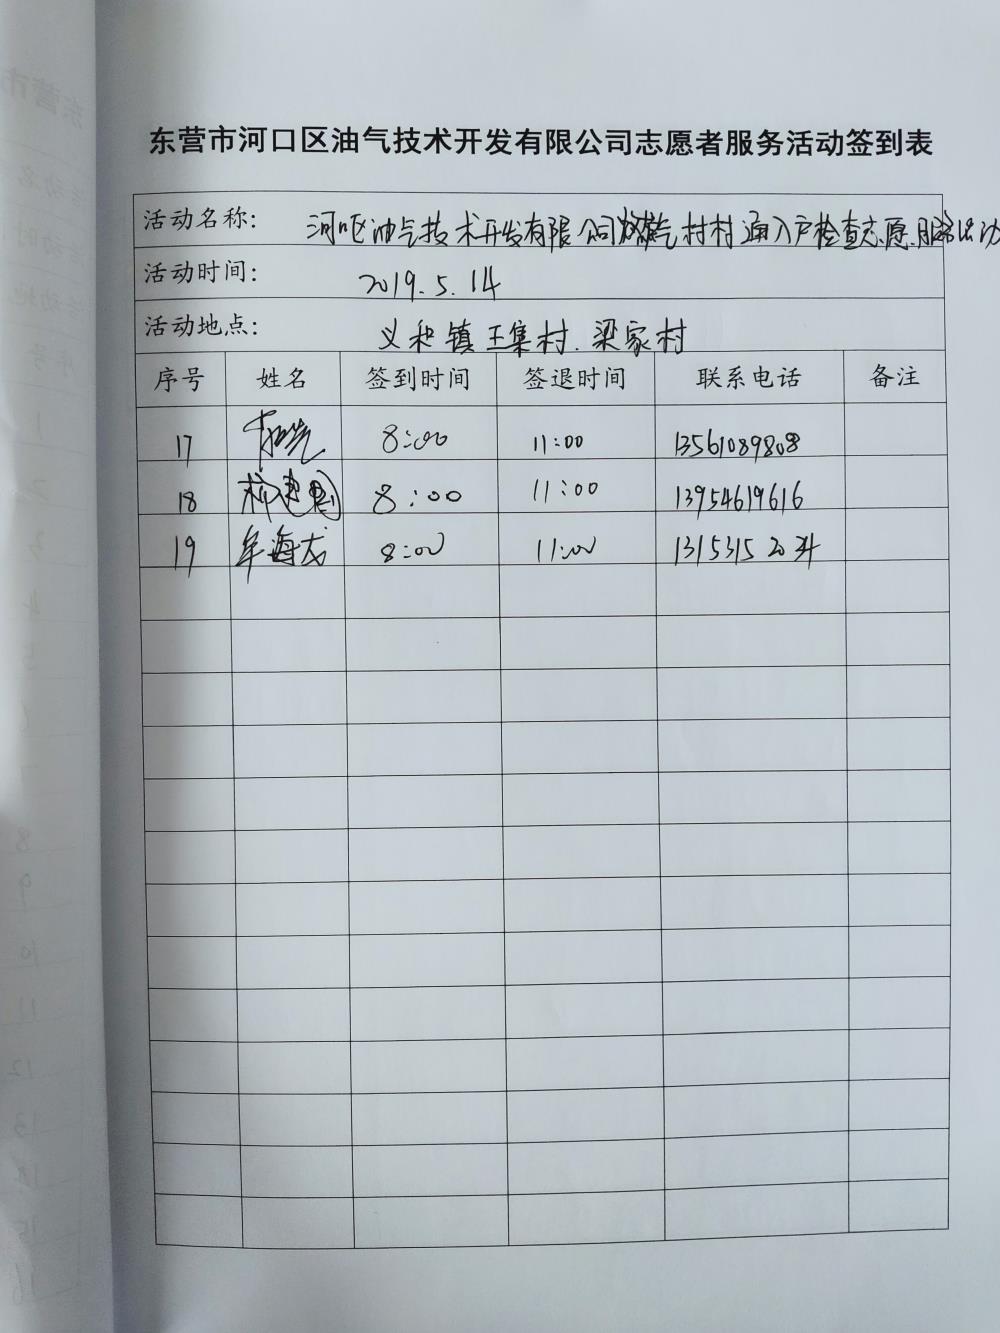 东营市河口区油气技术开发有限公司志愿者服务活动签到表
活动名称: 河口区油气技术开发有限公司 气村村通入户检查志愿服务活动
活动时间: 2019.5.14
活动地点: 义和镇王集村.梁家村
序号 姓名 签到时间 签退时间 联系电话 备注
17 8:00 11:00 13561089808
18 8:00 11:00 13954619616
19 牟海龙 8:00 11:00 1315315